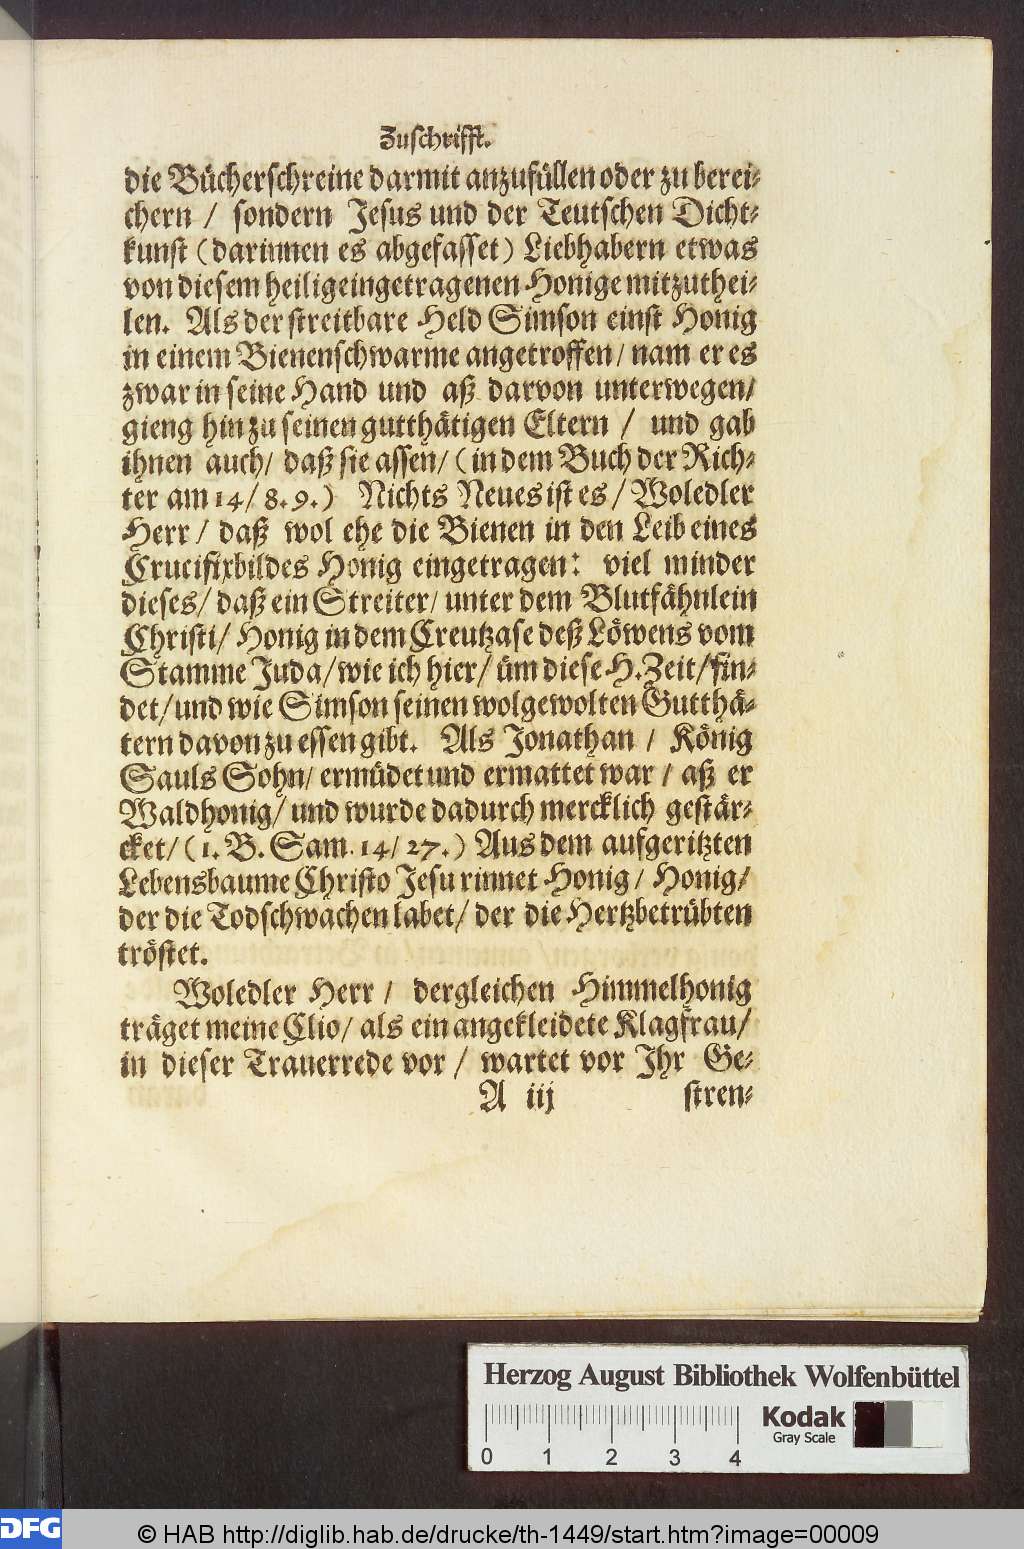 Zuschrifft.
die Bücherschreine darmit anzufüllen oder zu berei-
chern / sondern Jesus und der Teutschen Dicht-
kunst (darinnen es abgefasset) Liebhabern etwas
von diesem heiligeingetragenen Honige mitzuthei-
len. Als der streitbare Held Simson einst Honig
in einem Bienenschwarme angetroffen / nam er es
zwar in seine Hand und aß darvon unterwegen/
gieng hin zu seinen gutthätigen Eltern / und gab
ihnen auch/ daß sie assen/ (in dem Buch der Rich-
ter am 14/ 8. 9.) Nichts Neues ist es / Woledler
Herr / daß wol ehe die Bienen in den Leib eines
Crucifixbildes Honig eingetragen: viel minder
dieses/ daß ein Streiter/ unter dem Blutfähnlein
Christi/ Honig in dem Creutzase deß Löwens vom
Stamme Juda/ wie ich hier/ üm diese H. Zeit/ fin-
det/ und wie Simson seinen wolgewolten Gutthä-
tern davon zu essen gibt. Als Jonathan / König
Sauls Sohn/ ermüdet und ermattet war / aß er
Waldhonig/ und wurde dadurch mercklich gestär-
cket/ (1. B. Sam. 14/ 27.) Aus dem aufgeritzten
Lebensbaume Christo Jesu rinnet Honig / Honig/
der die Todschwachen labet/ der die Hertzbetrübten
tröstet.
Woledler Herr / dergleichen Himmelhonig
träget meine Clio/ als ein angekleidete Klagfrau/
in dieser Trauerrede vor / wartet vor Ihr Ge-
A iij stren-
Herzog August Bibliothek Wolfenbüttel
Kodak
Gray Scale
0 1 2 3 4
DFG
© HAB http://diglib.hab.de/drucke/th-1449/start.htm?image=00009